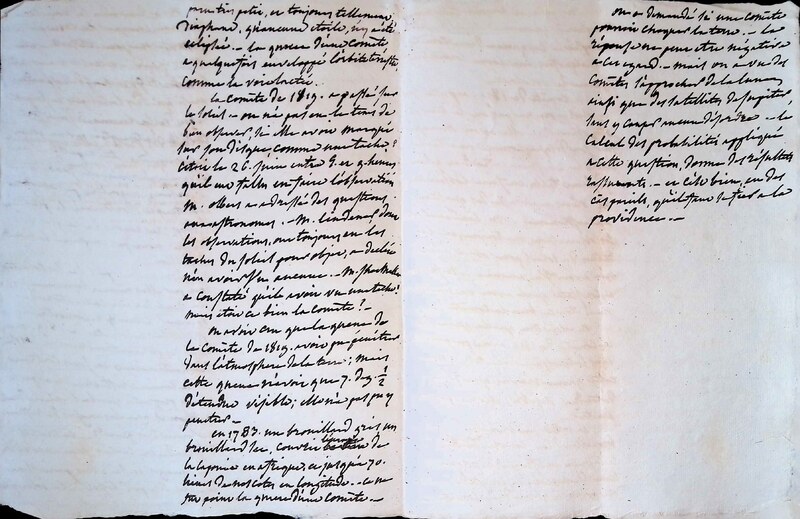 pour très petite, et toujours tellement
diaphane, qu'aucune étoile, n'y a été
éclipsé. – la queue d'une Comète
a quelquefois enveloppé l'orbite terrestre
comme la voie lactée.
la Comète de 1819. a passé sur
le soleil – on n'a pas eu le tems de
bien observer, si elle avoit marqué
sur son disque comme une tache?
c'étoit le 26. juin entre 5. et 9 heures
qu'il eut fallu en faire l'observation
M. olbers a adressé des questions
aux astronomes. – M. Lindener, dont
les observations, ont toujours eu les
taches du soleil pour objet, a déclaré
n'en avoir vu aucune. – M.
a constaté qu'il avoit vu une tache?
mais étoit ce bien la Comète? –
on avoit cru que la queue de
la Comète de 1819. avoit pu pénétrer
dans l'atmosphere de la terre; mais
cette queue n'avoit que 7. deg. ½
d'étendue visible; elle n'a pas pu y
penetrer –
en 1783. un brouillard gris un
brouillard sec, couvrit de
la laponie en afrique, et jusqu'a 70.
lieues de nos cotes en longitude. – ce ne
fut point la queue d'une Comète. –
on a demandé si une Comète
pouvoit choquer la terre. – la
réponse ne peut etre négative
a cet egard. – mais on a vu des
Comètes s'approcher de la lune
ainsi que des satellites de jupiter
sans y causer aucun désordre – le
calcul des probabilités appliqué
a cette question, donne des résultats
rassurants. – et c'est bien, en des
cas pareils, qu'il faut se fier a la
providence. –